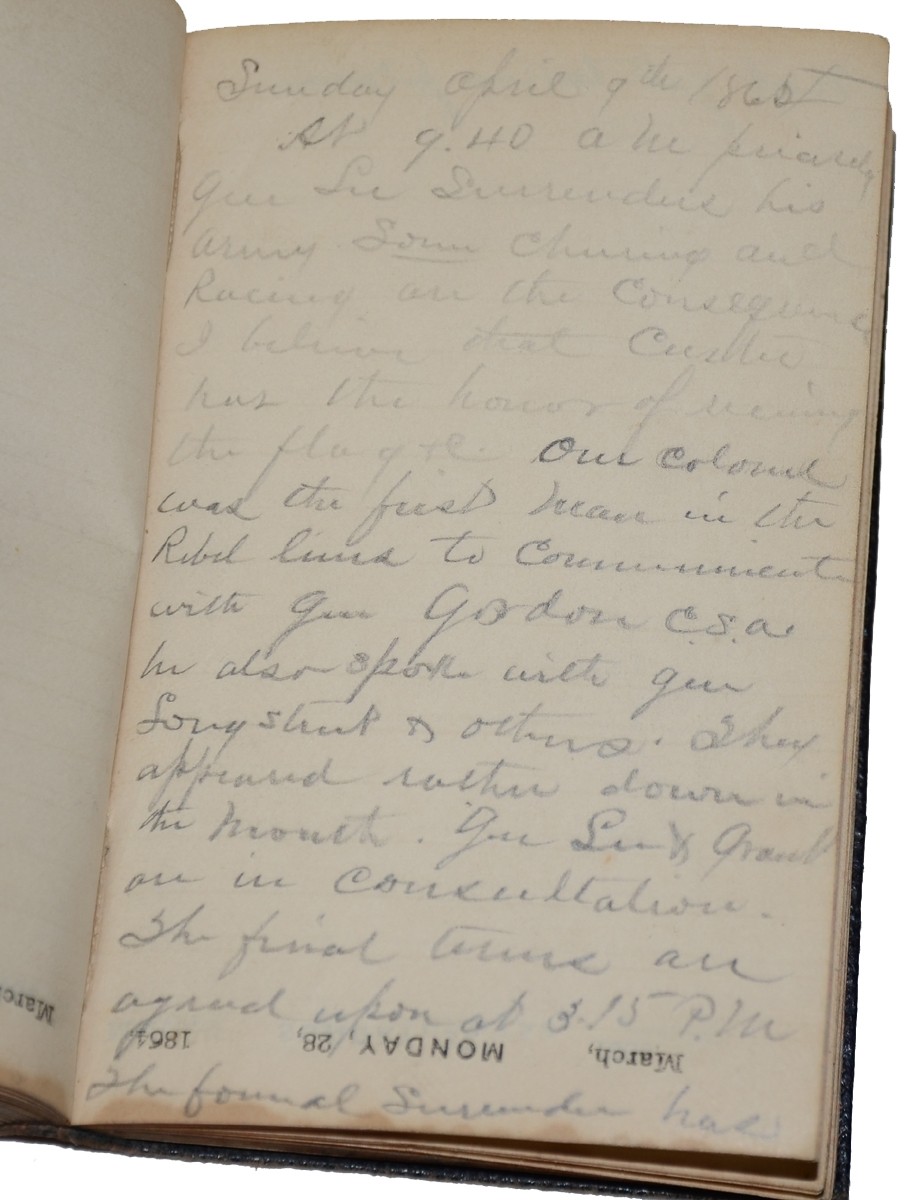 Sunday April 9th 1865
At 9.40 a M
Gen Lee Surrenders his
army. Some Cheering and
Racing are the Consequence
I believe that Custer
has the honor of receiving
the flag &c. Our Colonel
was the first man in the
Rebel lines to Communicate
with Gen Gordon C.S.A.
he also spoke with Gen
Longstreet & others. They
appeared rather down in
the mouth. Gen Lee & Grant
are in Consultation.
The final terms are
agreed upon at 3.15 P.M
March, MONDAY, 28, 1864
The formal Surrender has
March